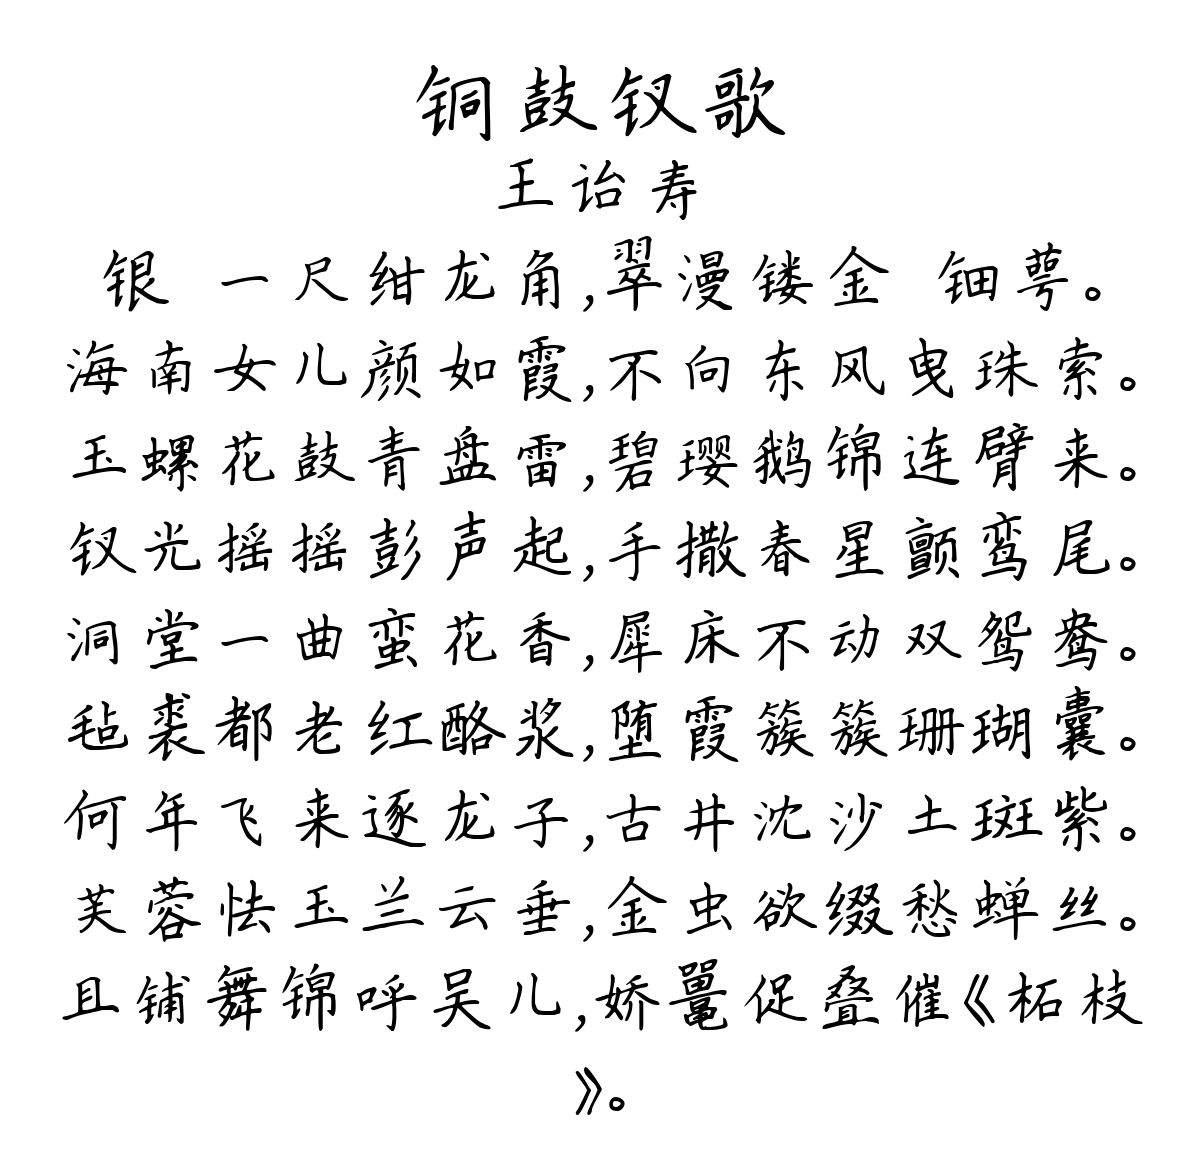 铜鼓钗歌
王诒寿
银 一尺绀龙角,翠漫镂金 钿萼。
海南女儿颜如霞,不向东风曳珠索。
玉螺花鼓青盘雷,碧璎鹅锦连臂来。
钗光摇摇彭声起,手撒春星颤鸾尾。
洞堂一曲蛮花香,犀床不动双鸳鸯。
毡裘都老红酪浆,堕霞簇簇珊瑚囊。
何年飞来逐龙子,古井沈沙土斑紫。
芙蓉怯玉兰云垂,金虫欲缀愁蝉丝。
且铺舞锦呼吴儿,娇鼍促叠催《柘枝
》。